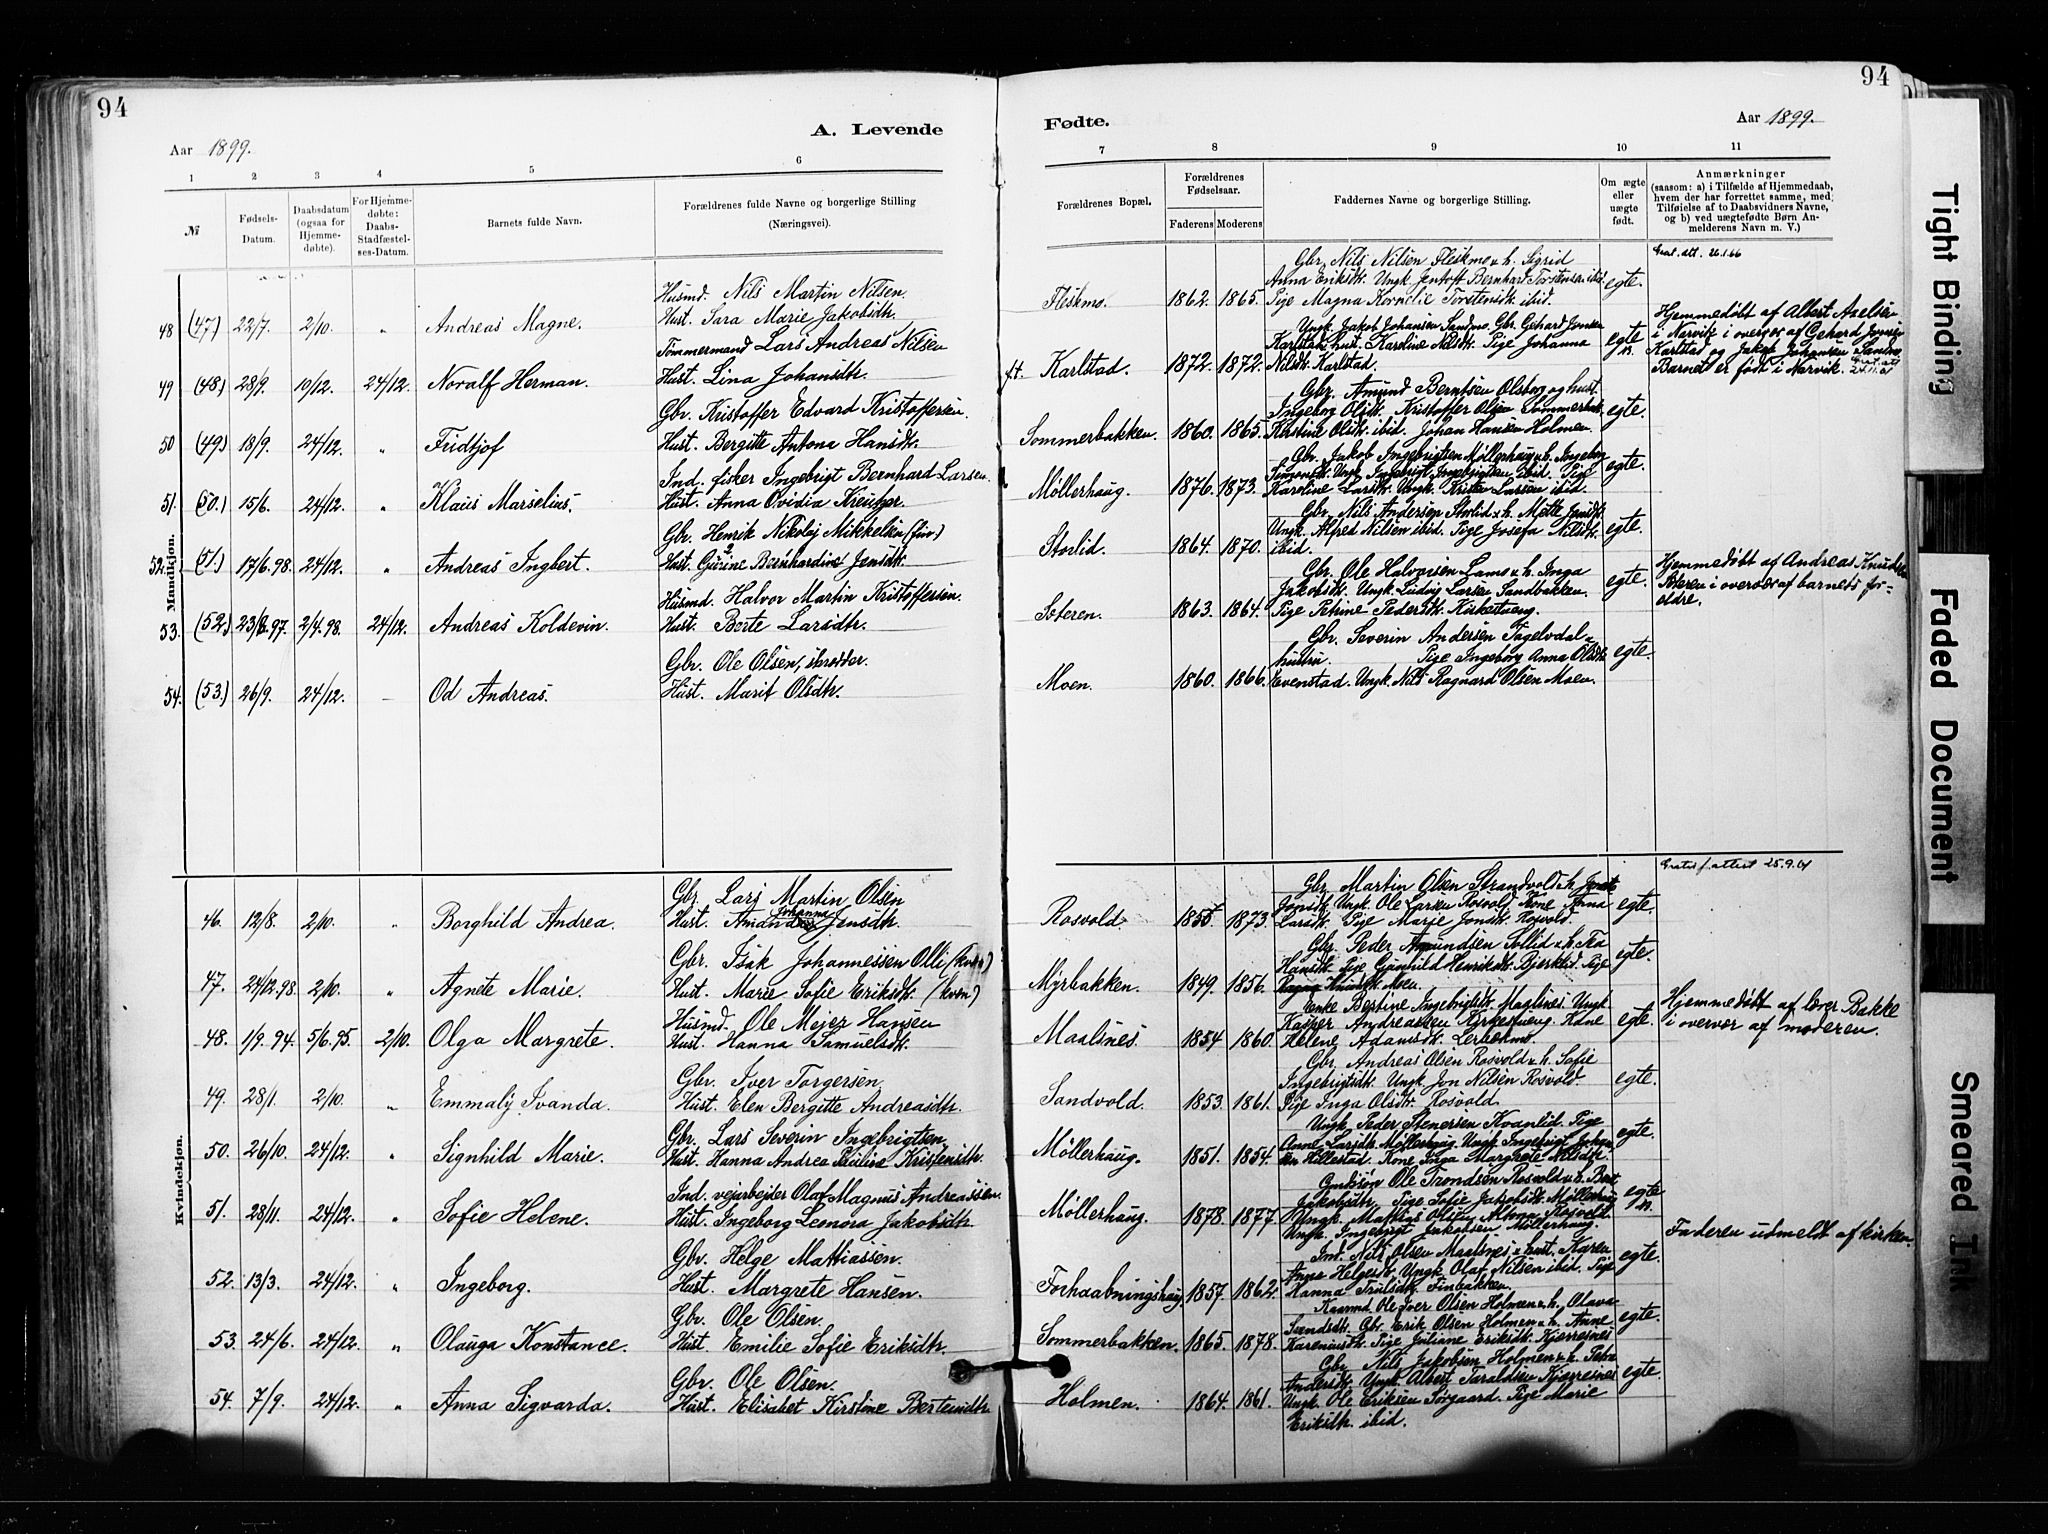 94
A. Levende
Aar 1899.
1 2 3 4 5 6
№
Fødsels-Datum.
Daabsdatum (ogsaa for Hjemme-døbte).
For Hjemme-døbte: Daabs-Stadfæstel-ses-Datum.
Barnets fulde Navn.
Forældrenes fulde Navne og borgerlige Stilling (Næringsvei).
Mandkjøn.
Husmd. Nils Martin Nilsen.
48 (47) 22/7. 2/10. „ Andreas Magne. Hust. Sara Marie Jakobsdtr.
Tømmermand Lars Andreas Nilsen
49 (48) 28/9. 10/12. 24/12. Noralf Herman. Hust. Lina Johansdtr.
Gbr. Kristoffer Edvard Kristoffersen.
50 (49) 18/9. 24/12. „ Fridtjof Hust. Bergitte Antona Hansdtr.
Ind. fisker Ingebrigt Bernhard Larsen.
51. (50.) 15/6. 24/12. „ Klaus Marselius. Hust. Anna Ovidia Kreutzer
Gbr. Henrik Nikolaj Mikkelsen (fin.)
52. (51.) 17/6.98. 24/12. „ Andreas Ingbert. Hust. Gurine Bernhardine Jensdtr.
Husmd. Halvor Martin Kristoffersen.
53. (52.) 23/8.97. 2/4.98. 24/12. Andreas Koldevin. Hust. Berte Larsdtr.
Gbr. Ole Olsen, skrædder.
54. (53.) 26/9. 24/12. – Od Andreas. Hust. Marit Olsdtr.
Kvindekjøn.
Gbr. Lars Martin Olsen
Johanna
46. 12/8. 2/10. „ Borghild Andrea. Hust. Amanda Jensdtr.
Gbr. Isak Johannessen Olli (kvæn)
47. 24/12.98. 2/10. „ Agnete Marie. Hust. Marie Sofie Eriksdtr. (kvæn)
Husmd. Ole Mejer Hansen
48. 1/9.94. 5/6.95. 2/10. Olga Margrete. Hust. Hanna Samuelsdtr.
Gbr. Iver Torgersen.
49. 28/1. 2/10. „ Emmaly Ivanda. Hust. Elen Bergitte Andreasdtr.
Gbr. Lars Severin Ingebrigtsen.
50. 26/10. 24/12. „ Signhild Marie. Hust. Hanna Andrea Paulina Kristensdtr.
Ind. vejarbejder Olaf Magnus Andreassen.
51. 28/11. 24/12. „ Sofie Helene. Hust. Ingeborg Leonora Jakobsdtr.
Gbr. Helge Mathiassen.
52. 13/3. 24/12. „ Ingeborg. Hust. Margrete Hansen.
Gbr. Ole Olsen.
53. 24/6. 24/12. „ Olauga Konstance. Hust. Emilie Sofie Eriksdtr.
Gbr. Ole Olsen.
54. 7/9. 24/12. „ Anna Sigvarda. Hust. Elisabet Kirstine Berteusdtr.
94
Fødte.
Aar 1899.
7 8 9 10 11
Forældrenes Bopæl.
Forældrenes Fødselsaar.
Faderens Moderens
Faddernes Navne og borgerlige Stilling.
Om ægte eller uægte født.
Anmærkninger
(saasom: a) i Tilfælde af Hjemmedaab, hvem der har forrettet samme, med Tilføielse af to Daabsvidners Navne, og b) ved uægtefødte Børn Anmelderens Navn m. V.)
Grat. att. 26.1.66
Gbr. Nils Nilsen Fleskmo & h. Sigrid
Anna Eriksdtr. Ungk. Jentoft Bernhard Torstensen ibid.
Fleskmo. 1862. 1865. Pige Magna Kornelie Torstensdtr. ibid. egte.
Ungk. Jakob Johansen Sandmo. Gbr. Gehard Jensen
Karlstad hust. Karoline Nilsdtr. Pige Johanna
ft. Karlstad. 1872. 1872. Nilsdtr. Karlstad. egte
Hjemmedøbt af Albert Axelsen
i Narvik i overvær af Gehard Jensen
Karlstad og Jakob Johansen Sandmo
Barnet er født i Narvik.
Gbr. Amund Berntsen Olsborg og hust.
Ingeborg Olsdtr. Kristoffer Olsen Sommerbak.
Sommerbakken. 1860. 1865. Kerstine Olsdtr. ibid. Johan Hansen Holmen. egte.
Gbr. Jakob Ingebrigtsen Møllerhaug & h. Ingeborg
Simonsdtr. Ungk. Ingebrigt Ingebrigtsen ibid. Pige
Møllerhaug. 1876. 1873. Karoline Larsdtr. Ungk. Kristen Larsen ibid. egte.
Gbr. Nils Andersen Storlid & h. Mette Jonsdtr.
Ungk. Alfred Nilsen ibid. Pige Josefa Nilsdtr.
Storlid. 1864. 1870. ibid. egte.
Gbr. Ole Halvorsen Lamo & h. Inga
Jakobsdtr. Ungk. Ludvig Larsen Sandbakken.
Soteren. 1863. 1864. Pige Petrine Pedersdtr. Kirkestueng. egte.
Hjemmedøbt af Andreas Knudsen
Soteren i overvær af barnets for-
ældre.
Gbr. Severin Andersen Tagelvdal &
hustru. Pige Ingeborg Anna Olsdtr.
Moen. 1860. 1866. Evenstad. Ungk. Nils Ragnard Olsen Moen. egte.
Gratis f. attest 25.9.61
Gbr. Martin Olsen Strandvold & h.
Jonsdtr. Ungk. Ole Larsen Rosvold. Kone Anna
Rosvold. 1855 1873. Larsdtr. Pige Marie Jonsdtr. Rosvold. egte.
Gbr. Peder Amundsen Sollid & h. Tea
Hansdtr. Pige Gunhild Henriksdtr. Bjerklid. Pige
Myrbakken. 1849. 1856. Moen. egte.
Enke Bertine Ingebrigtsdtr. Maalsnes. Ungk.
Kasper Andreassen Kirkestueng. Kone
Maalsnes. 1854 1860. Helene Adamsdtr. Lerbekmo. egte.
Hjemmedøbt af Iver Bakke
i overvær af moderen.
Gbr. Andreas Olsen Rosvold & h. Sofie
Ingebrigtsdtr. Ungk. Jon Nilsen Rosvold
Sandvold. 1853. 1861. Pige Inga Olsdtr. Rosvold. egte.
Ungk. Peder Stenersen Kvanlid. Pige
Anne Larsdtr. Møllerhaug. Ungk. Ingebrigt Johan-
Møllerhaug. 1851. 1854. sen Hillestad. Kone Inga Margrete Nilsdtr. egte.
Gmlesøn Ole Trondsen Rosvold & h. Berit
Jakobsdtr. Pige Sofie Jakobsdtr. Møllerhaug
Møllerhaug. 1878. 1877. Ungk. Mathias Olsen Rosvold.
Ungk. Ingebrigt Jakobsen Møllerhaug. egte
Ind. Nils Olsen Maalsnes & hust. Karen
Anna Helgesdtr. Ungk. Olaf Nilsen ibid. Pige
Forhaabningshaug. 1857. 1862. Hanna Trulsdtr. Finbakken. egte.
Faderen udmeldt af kirken.
Kaarmd. Ole Iver Olsen Holmen & h. Olava
Svendsdtr. Gbr. Erik Olsen Holmen & h. Anne
Sommerbakken. 1865. 1878. Kareniusdtr. Pige Juliane Eriksdtr. Kjerresnes egte.
Gbr. Nils Jakobsen Holmen & h. Petra
Andersdtr. Ungk. Albert Taraldsen Kjerresnes
Holmen. 1864. 1861. Ungk. Ole Eriksen Sørgaard. Pige Marie
Eriksdtr. ibid. egte.
Tight Binding
Faded Document
Smeared Ink